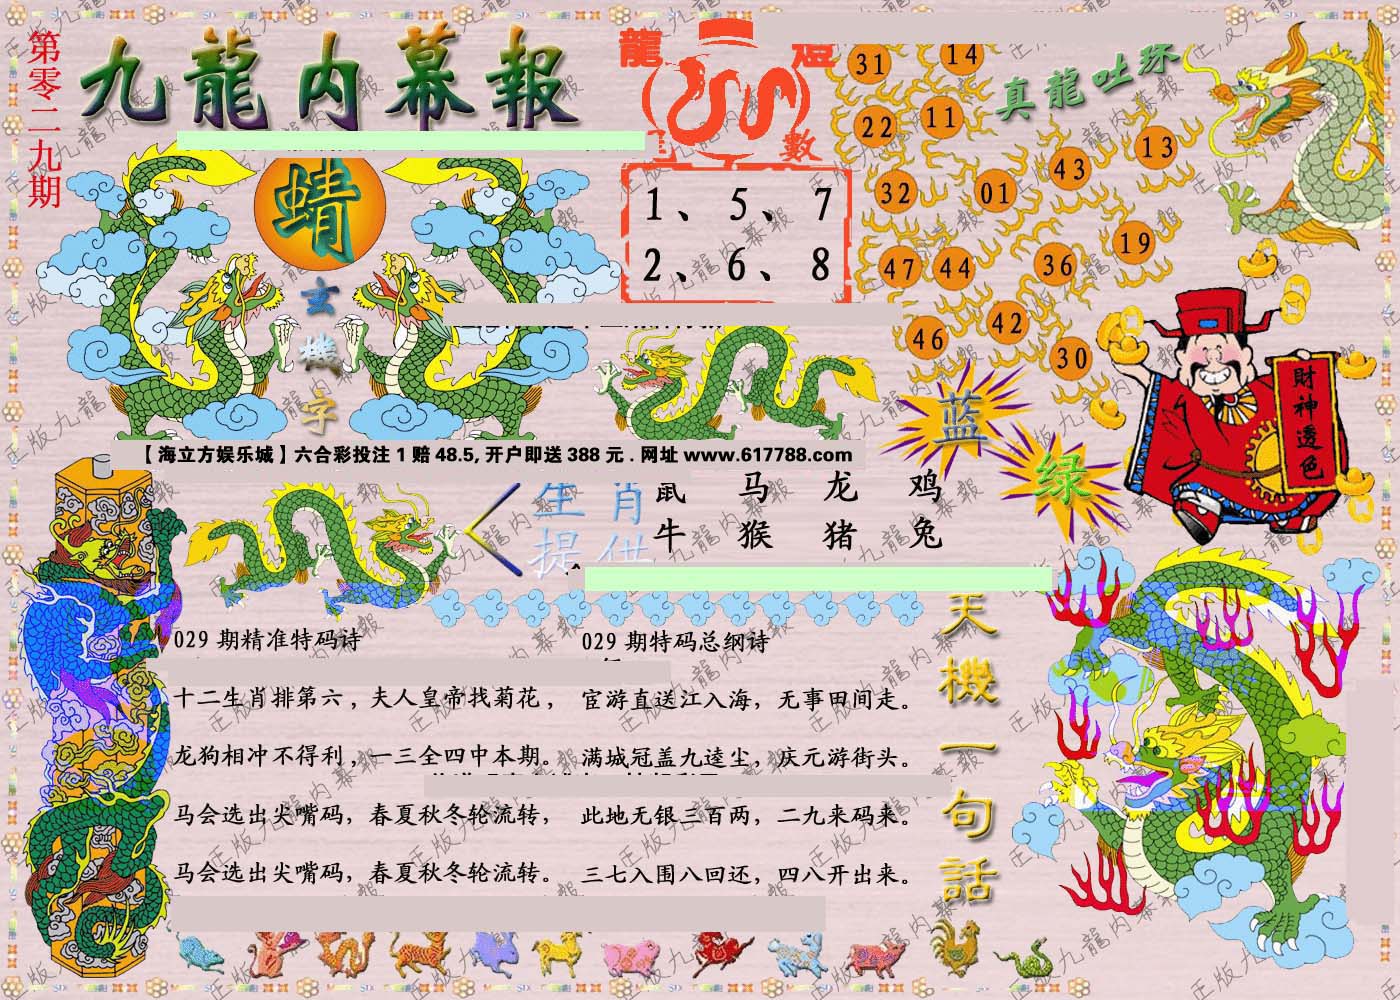 第零二九期
九龍内幕報
蜻
玄機字
龍
數
1、5、7
2、6、8
真龍吐珠
31
14
22
11
13
43
32
01
19
47
44
36
42
46
30
財神透色
蓝
绿
【海立方娱乐城】六合彩投注1赔48.5,开户即送388元.网址www.617788.com
生肖
提供
鼠 马 龙 鸡
牛 猴 猪 兔
029期精准特码诗
十二生肖排第六，夫人皇帝找菊花，
龙狗相冲不得利，一三全四中本期。
马会选出尖嘴码，春夏秋冬轮流转，
马会选出尖嘴码，春夏秋冬轮流转。
029期特码总纲诗
宦游直送江入海，无事田间走。
满城冠盖九逵尘，庆元游街头。
此地无银三百两，二九来码来。
三七入围八回还，四八开出来。
天機一句話
正版九龍内幕報